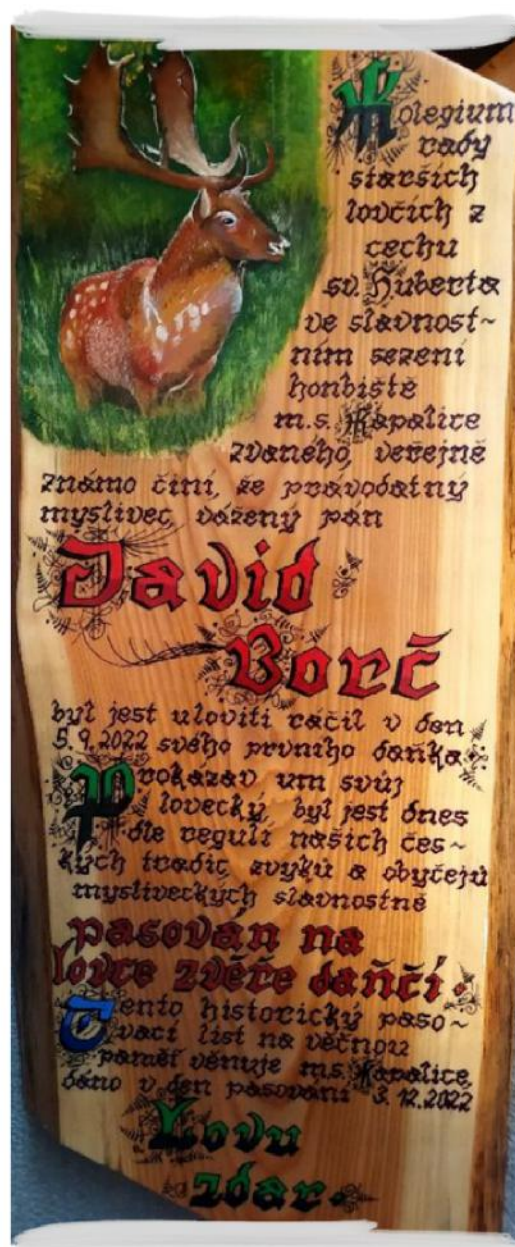 Kolegium
rady
starších
lovčích z
cechu
sv. Huberta
ve slavnost~
ním sezení
honbiště
m.s. Kapalice
zvaného, veřejně
známo činí, že právodatný
myslivec, vážený pán
David
Borč
byl jest uloviti ráčil v den
5.9.2022 svého prvního daňka.
Prokázav um svůj
lovecký, byl jest dnes
dle regulí našich čes~
kých tradic, zvyků a obyčejů
mysliveckých slavnostně
pasován na
lovce zvěře daňčí.
Tento historický paso~
vací list na věčnou
paměť věnuje m.s. Kapalice,
dáno v den pasování 3.12.2022
Lovu
zdar.